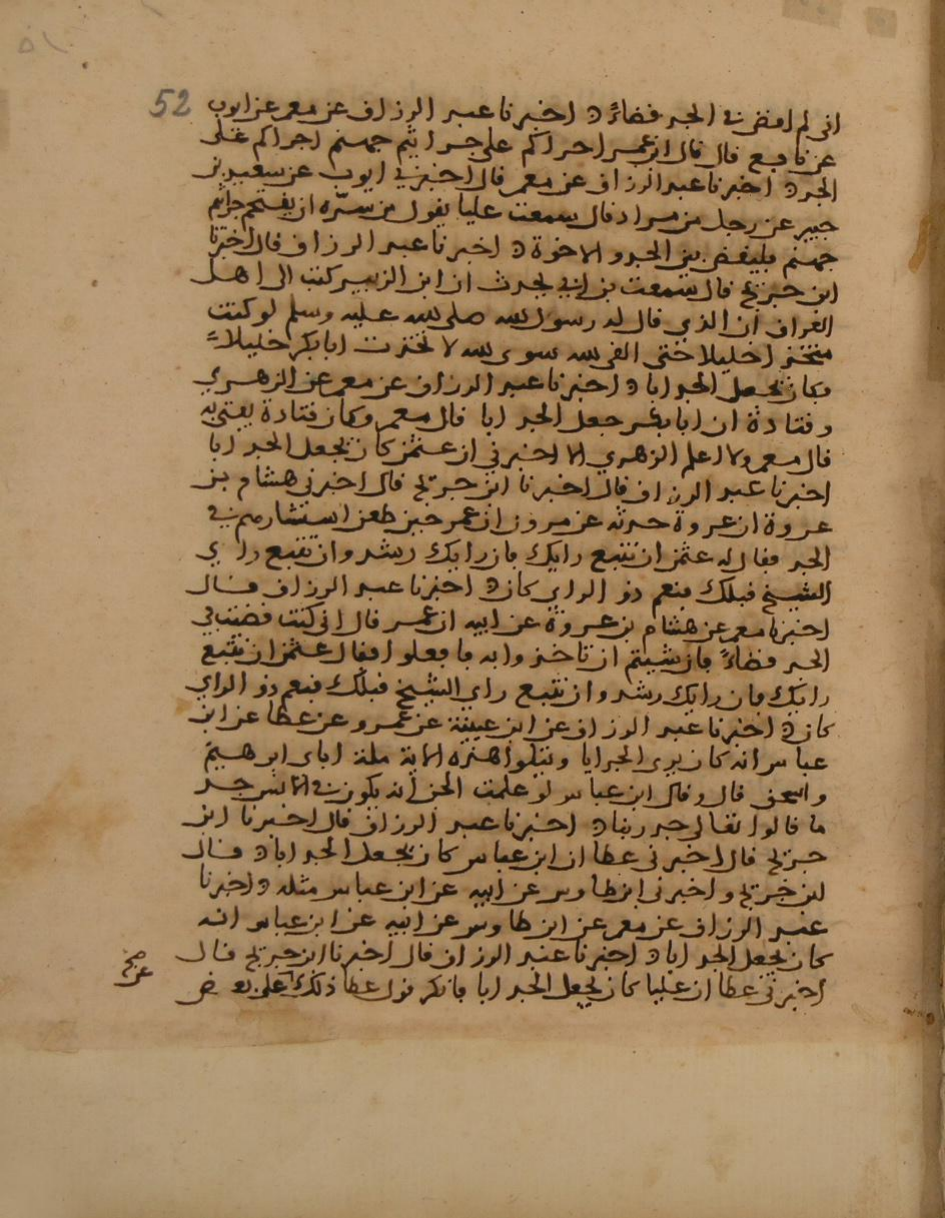 52
اني لم اقض في الجد قضاءً ۞ اخبرنا عبد الرزاق عن معمر عن ايوب
عن نافع قال قال ابن عمر اجراكم على جراثيم جهنم اجراكم على
الجد ۞ اخبرنا عبد الرزاق عن معمر قال اخبرني ايوب عن سعيد بن
جبير عن رجل من مراد قال سمعت عليا يقول من سره ان يقتحم جراثيم
جهنم فليقض بين الجد والاخوة ۞ اخبرنا عبد الرزاق قال اخبرنا
ابن جريج قال سمعت بن ابي يحدث ان ابن الزبير كتب الى اهل
العراق ان الذي قال له رسول الله صلى الله عليه وسلم لو كنت
متخذا خليلا حتى القى الله سوى الله لاتخذت ابا بكر خليلاً
فكان يجعل الجد ابا ۞ اخبرنا عبد الرزاق عن معمر عن الزهري
وقتادة ان ابا بكر جعل الجد ابا قال معمر وكان قتادة يفتي به
قال معمر ولا اعلم الزهري الا اخبرني ان عثمن كان يجعل الجد ابا
اخبرنا عبد الرزاق قال اخبرنا ابن جريج قال اخبرني هشام بن
عروة ان عروة حدثه عن مروان ان عمر حين طعن استشارهم في
الجد فقال له عثمن ان نتبع رايك فان رايك رشد وان نتبع راي
الشيخ قبلك فنعم ذو الراي كان ۞ اخبرنا عبد الرزاق قال
اخبرنا معمر عن هشام بن عروة عن ابيه ان عمر قال اني كنت قضيت في
الجد قضاءً فان شيتم ان تاخذوا به فافعلوا فقال عثمن ان نتبع
رايك فان رايك رشد وان نتبع راي الشيخ قبلك فنعم ذو الراي
كان ۞ اخبرنا عبد الرزاق عن ابن عيينة عن عمرو عن عطا عن ابن
عباس انه كان يرى الجد ابا ويتلوا هذه الاية ملة اباى ابرهيم
واسحق قال وقال ابن عباس لو علمت الجن انه يكون في الانس جد
ما قالوا تعالى جد ربنا ۞ اخبرنا عبد الرزاق قال اخبرنا ابن
جريج قال اخبرني عطا ان ابن عباس كان يجعل الجد ابا ۞ قال
ابن جريج واخبرني ابن طاوس عن ابيه عن ابن عباس مثله ۞ اخبرنا
عبد الرزاق عن معمر عن ابن طاوس عن ابيه عن ابن عباس انه
كان يجعل الجد ابا ۞ اخبرنا عبد الرزاق قال اخبرنا ابن جريج قال
اخبرني عطا ان عليا كان يجعل الجد ابا فانكر قول عطا ذلك على بعض